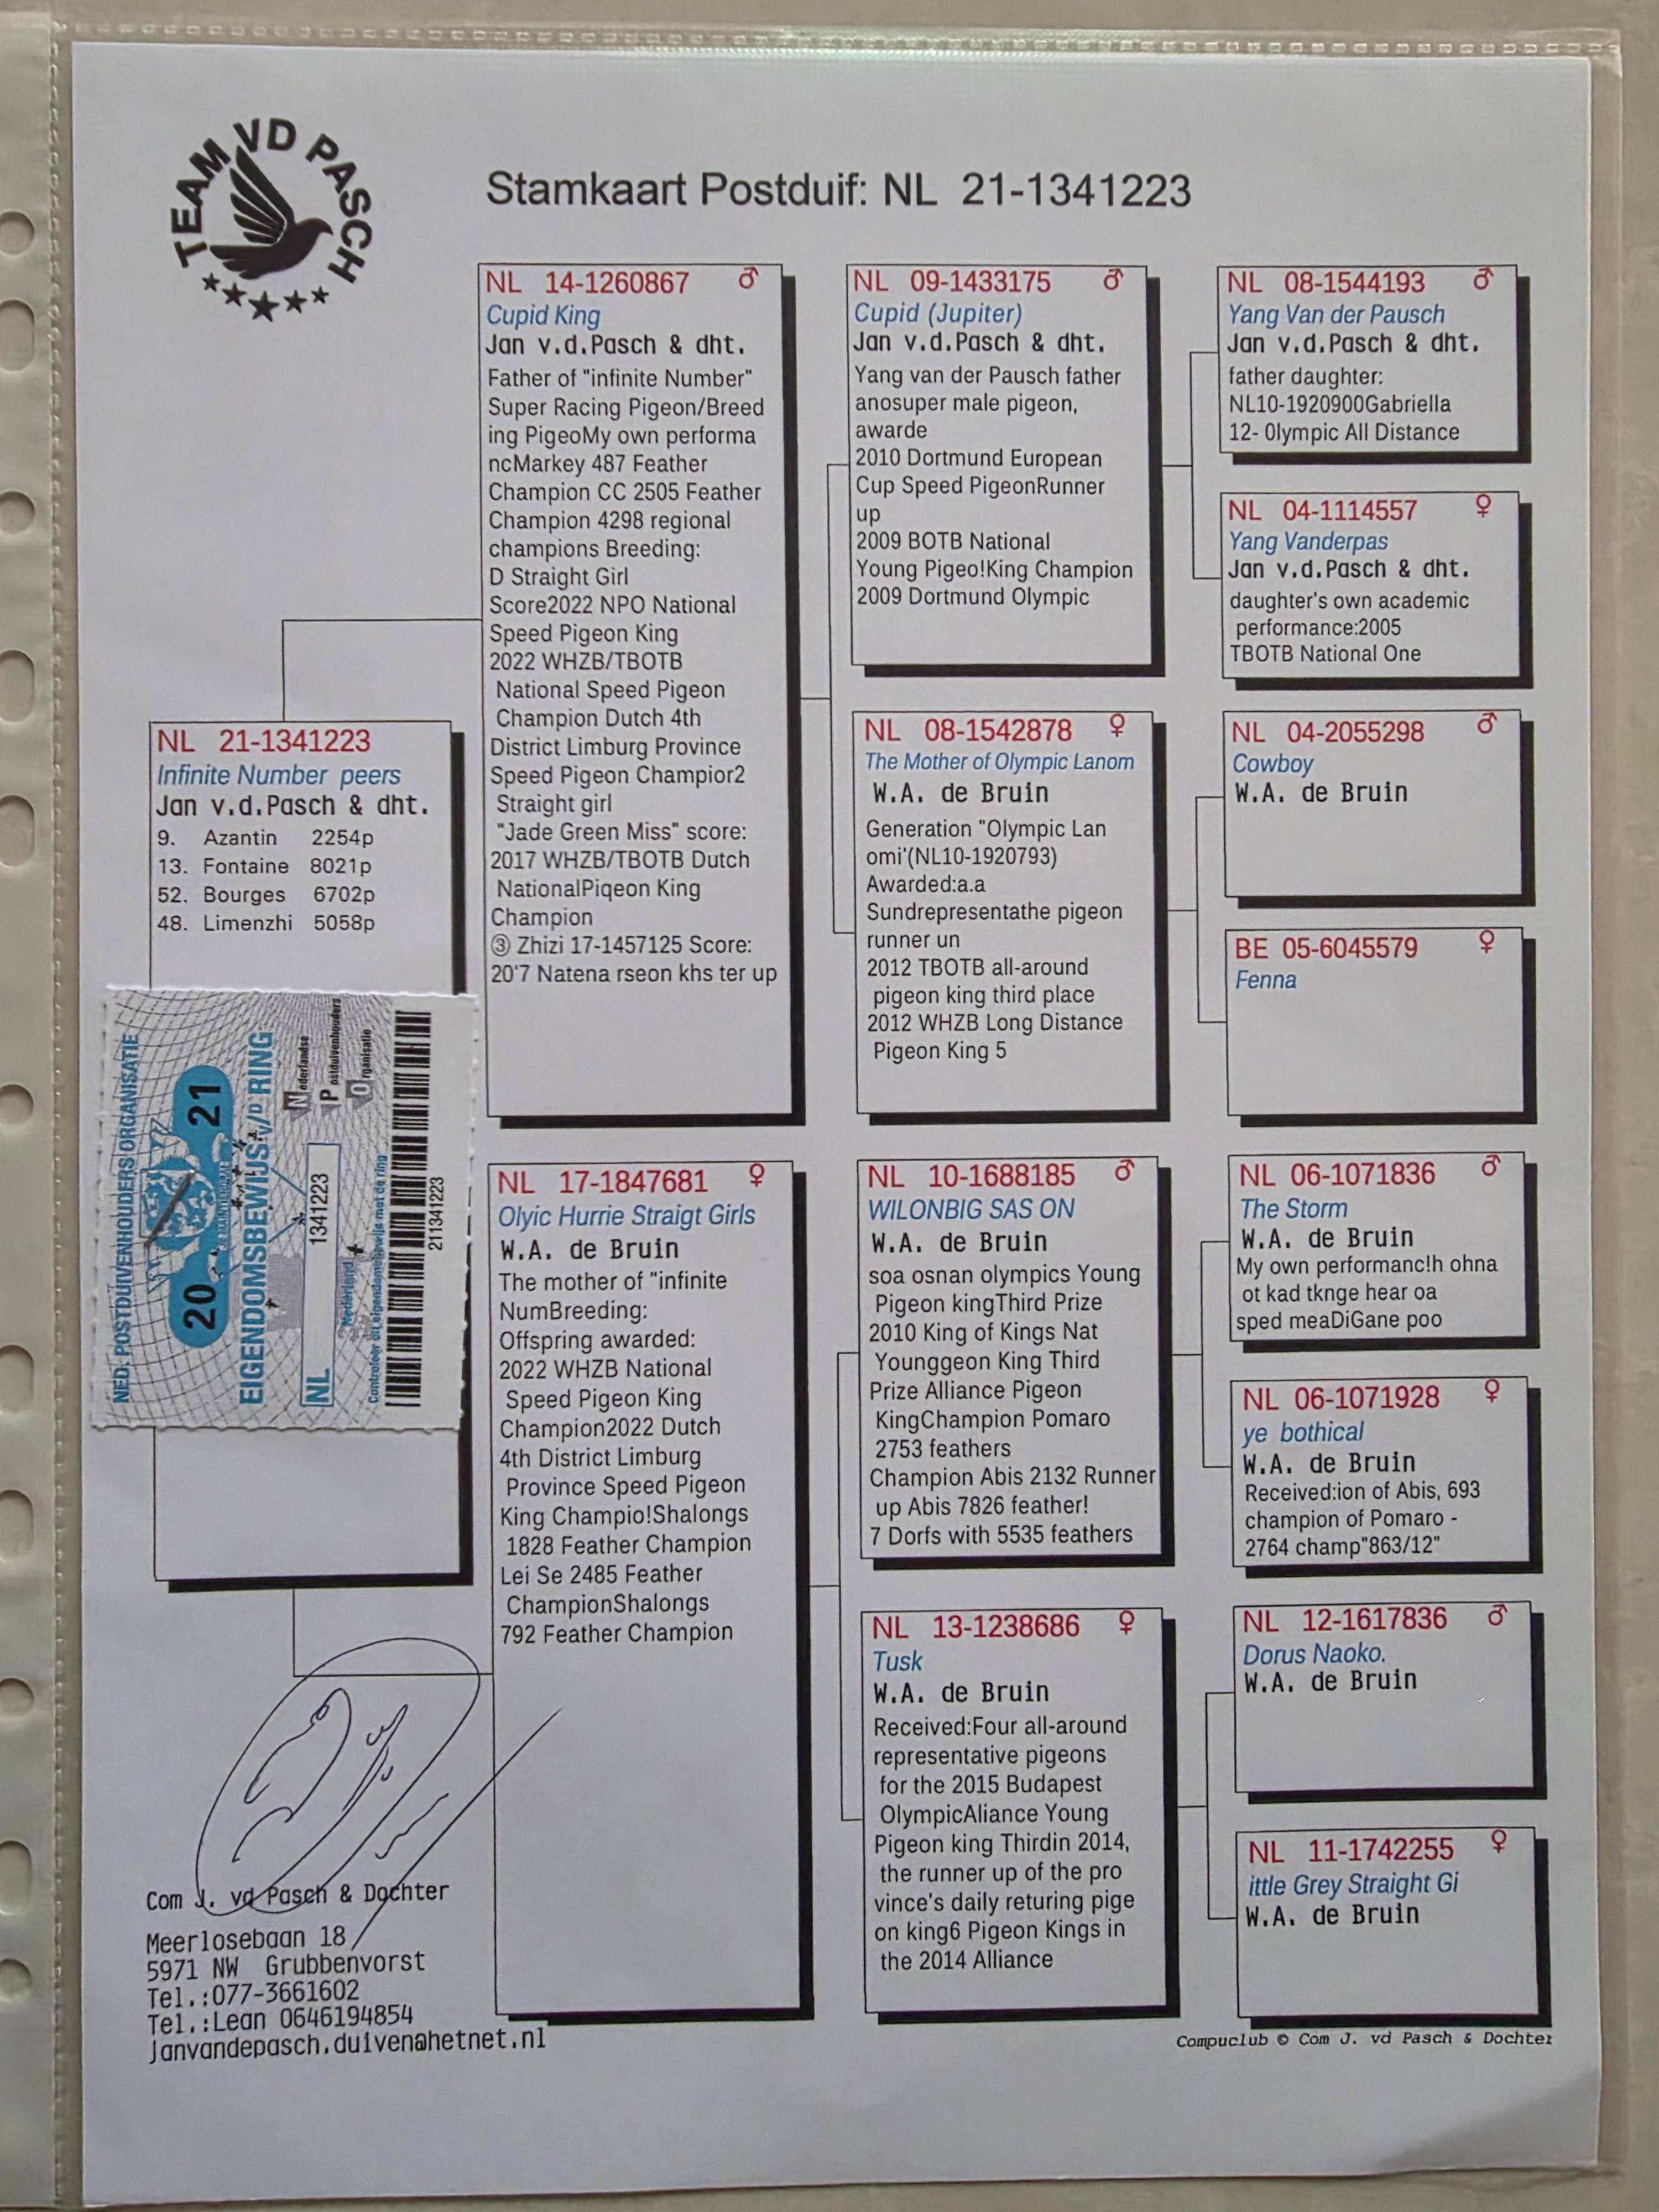 TEAM VD PASCH
Stamkaart Postduif: NL 21-1341223
NL 21-1341223
Infinite Number peers
Jan v.d.Pasch & dht.
9. Azantin 2254p
13. Fontaine 8021p
52. Bourges 6702p
48. Limenzhi 5058p
NED. POSTDUIVENHOUDERS ORGANISATIE
20 21
EIGENDOMSBEWIJS V/D RING
Nederlandse
Postduivenhouders
Organisatie
NL 1341223
Nederland
Controleer dit eigendomsbewijs met de ring
211341223
NL 14-1260867 ♂
Cupid King
Jan v.d.Pasch & dht.
Father of "infinite Number"
Super Racing Pigeon/Breed
ing PigeoMy own performa
ncMarkey 487 Feather
Champion CC 2505 Feather
Champion 4298 regional
champions Breeding:
D Straight Girl
Score2022 NPO National
Speed Pigeon King
2022 WHZB/TBOTB
National Speed Pigeon
Champion Dutch 4th
District Limburg Province
Speed Pigeon Champior2
Straight girl
"Jade Green Miss" score:
2017 WHZB/TBOTB Dutch
NationalPiqeon King
Champion
③ Zhizi 17-1457125 Score:
20'7 Natena rseon khs ter up
NL 17-1847681 ♀
Olyic Hurrie Straigt Girls
W.A. de Bruin
The mother of "infinite
NumBreeding:
Offspring awarded:
2022 WHZB National
Speed Pigeon King
Champion2022 Dutch
4th District Limburg
Province Speed Pigeon
King Champio!Shalongs
1828 Feather Champion
Lei Se 2485 Feather
ChampionShalongs
792 Feather Champion
NL 09-1433175 ♂
Cupid (Jupiter)
Jan v.d.Pasch & dht.
Yang van der Pausch father
anosuper male pigeon,
awarde
2010 Dortmund European
Cup Speed PigeonRunner
up
2009 BOTB National
Young Pigeo!King Champion
2009 Dortmund Olympic
NL 08-1542878 ♀
The Mother of Olympic Lanom
W.A. de Bruin
Generation "Olympic Lan
omi'(NL10-1920793)
Awarded:a.a
Sundrepresentathe pigeon
runner un
2012 TBOTB all-around
pigeon king third place
2012 WHZB Long Distance
Pigeon King 5
NL 10-1688185 ♂
WILONBIG SAS ON
W.A. de Bruin
soa osnan olympics Young
Pigeon kingThird Prize
2010 King of Kings Nat
Younggeon King Third
Prize Alliance Pigeon
KingChampion Pomaro
2753 feathers
Champion Abis 2132 Runner
up Abis 7826 feather!
7 Dorfs with 5535 feathers
NL 13-1238686 ♀
Tusk
W.A. de Bruin
Received:Four all-around
representative pigeons
for the 2015 Budapest
OlympicAliance Young
Pigeon king Thirdin 2014,
the runner up of the pro
vince's daily returing pige
on king6 Pigeon Kings in
the 2014 Alliance
NL 08-1544193 ♂
Yang Van der Pausch
Jan v.d.Pasch & dht.
father daughter:
NL10-1920900Gabriella
12- 0lympic All Distance
NL 04-1114557 ♀
Yang Vanderpas
Jan v.d.Pasch & dht.
daughter's own academic
performance:2005
TBOTB National One
NL 04-2055298 ♂
Cowboy
W.A. de Bruin
BE 05-6045579 ♀
Fenna
NL 06-1071836 ♂
The Storm
W.A. de Bruin
My own performanc!h ohna
ot kad tknge hear oa
sped meaDiGane poo
NL 06-1071928 ♀
ye bothical
W.A. de Bruin
Received:ion of Abis, 693
champion of Pomaro -
2764 champ"863/12"
NL 12-1617836 ♂
Dorus Naoko.
W.A. de Bruin
NL 11-1742255 ♀
ittle Grey Straight Gi
W.A. de Bruin
Com J. vd Pasch & Dochter
Meerlosebaan 18
5971 NW Grubbenvorst
Tel.:077-3661602
Tel.:Lean 0646194854
janvandepasch.duiven@hetnet.nl
Compuclub © Com J. vd Pasch & Dochter